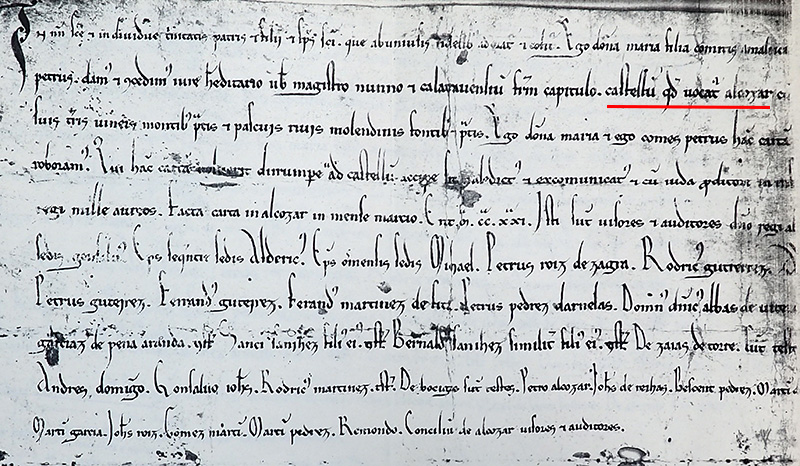 In nn sce & individue trinitatis patris & filii & sps sci. que abuniusis fidelib; adorat & colit. Ego dona maria filia comitis amalrici
petrus. dam' & cedim' iure h'editario ub' magistro nunno & calatraventiu frm capitulo. castellu qd vocat alcozar cu
suis tris vineis montib' ptis & pascuis rivis molendinis fontib' & ptis. Ego dona maria & ego comes petrus hac carta
roboram'. Qui hac carta dirumpe ad castellu sit maledict' & excomunicat' & cu iuda pditore in inf
regi mille aureos. Facta carta in alcozar in mense marcio. Era. m. cc. xxi. Isti sut visores & auditores dno regi al
sedis Eps seguncie sedis Alderic'. Eps oxmensis sedis Mihael. Petrus roiz de zagra. Rodric' guterrez
Petrus guterrez. Ferand' guterrez. Ferand' martinez de Petrus pedrez darnelas. Domin' dnic' albas de
garciaz de pena aranda. tst. Sanci sanchez fili' ei'. tst. Bernald' sanchez similit fili' ei'. tst. De zaias de torre. sut testes
Andres domigo. Gonsalvo ioh's. Rodric' martinez. tst. De bocigas sut testes. Petro alcozar. Joh's de rexhas. Bescent pedrez. Marti
Marti garcia. Joh's roiz. Gomez marti. Marti pedrez. Remondo. Conciliu de alcozar visores & auditores.